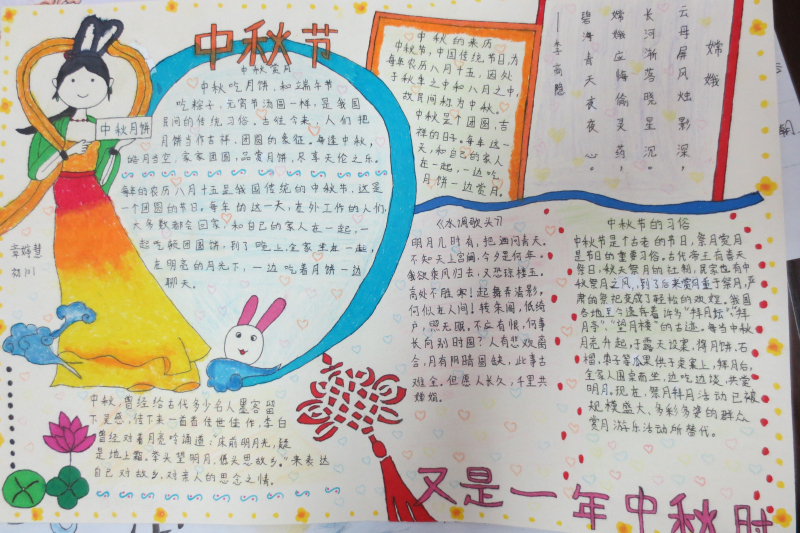 中秋节
中秋赏月
中秋吃月饼,和端午节
吃粽子,元宵节汤圆一样,是我国
民间的传统习俗。古往今来,人们把
月饼当作吉祥,团圆的象征。每逢中秋,
皓月当空,家家团圆,品赏月饼,尽享天伦之乐。
每年的农历八月十五是我国传统的中秋节,这是
一个团圆的节日,每年的这一天,在外工作的人们,
大多数都会回家,和自己的家人在一起,一
起吃顿团圆饼,到了晚上全家坐在一起,
在明亮的月光下,一边吃着月饼一边
聊天。
中秋月饼
中秋的来历
中秋节,中国传统节日,为
每年农历八月十五,因处
于秋季之中和八月之中,
故民间称为中秋。
中秋是个团圆,吉
祥的日子。每年这一
天,和自己的家人
在一起,一边吃
月饼一边赏月。
嫦娥
云母屏风烛影深,
长河渐落晓星沉。
嫦娥应悔偷灵药,
碧海青天夜夜心。
——李商隐
《水调歌头》
明月几时有,把酒问青天。
不知天上宫阙,今夕是何年。
我欲乘风归去,又恐琼楼玉。
高处不胜寒!起舞弄清影,
何似在人间!转朱阁,低绮
户,照无眠。不应有恨,何事
长向别时圆?人有悲欢离
合,月有阴晴圆缺,此事古
难全。但愿人长久,千里共
婵娟。
中秋节的习俗
中秋节是个古老的节日,祭月赏月
是节日的重要习俗。古代帝王有春天
祭日,秋天祭月的社制,民家也有中
秋祭月之风,到了后来赏月重于祭月,严
肃的祭祀变成了轻松的欢娱。我国
各地至今遗存着许多"拜月坛","拜
月亭","望月楼"的古迹。每当中秋
月亮升起,于露天设案,将月饼、石
榴、枣子等瓜果供于桌案上,拜月后,
全家人围桌而坐,边吃边谈,共赏
明月。现在,祭月拜月活动已被
规模盛大、多彩多姿的群众
赏月游乐活动所替代。
中秋,曾经给古代多少名人墨客留
下灵感,传下来一首首传世佳作,李白
曾经对着月亮吟诵道:"床前明月光,疑
是地上霜。举头望明月,低头思故乡。"来表达
自己对故乡,对亲人的思念之情。
又是一年中秋时